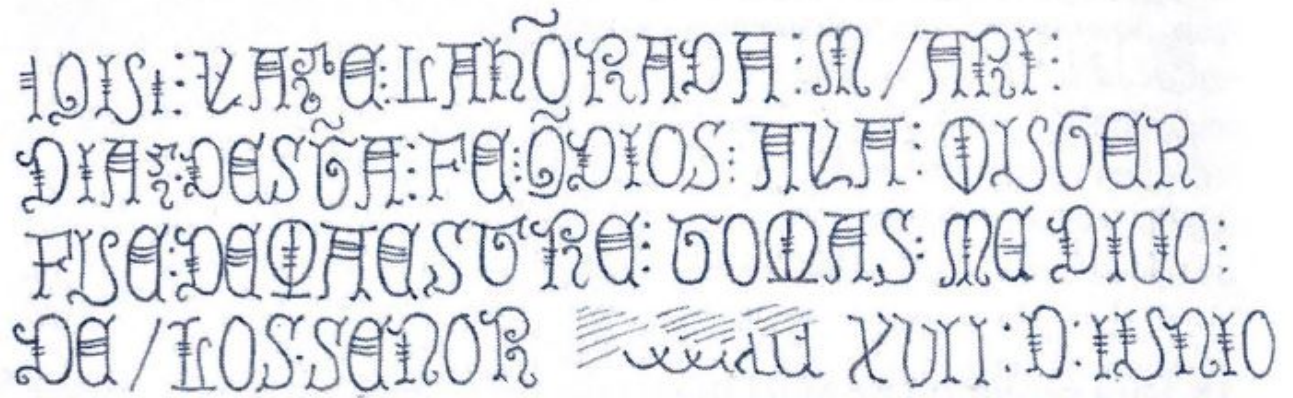 AQUI: YAZE: LAHÕRADA: M / ARI:
DIAZ: DESTA: FE: Q̃DIOS: AYA: MUGER
FUE: DEMAESTRE: TOMAS: MEDICO:
DE / LOS: SENOR XVII: D: IUNIO